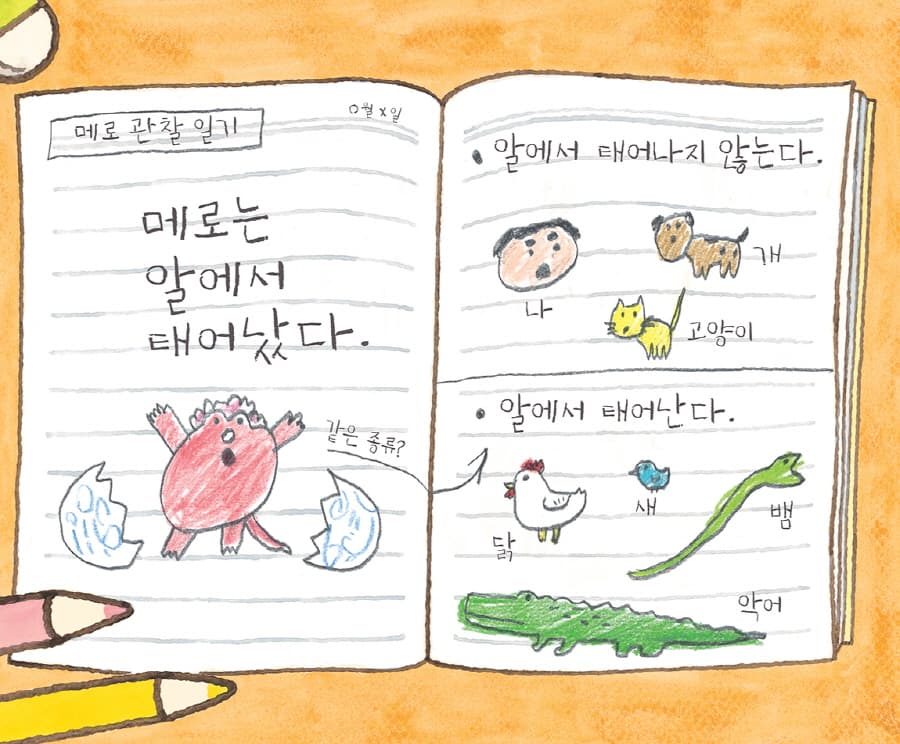 메로 관찰 일기
0월 x일
메로는
알에서
태어났다.
같은 종류?
• 알에서 태어나지 않는다.
나
개
고양이
• 알에서 태어난다.
닭
새
뱀
악어